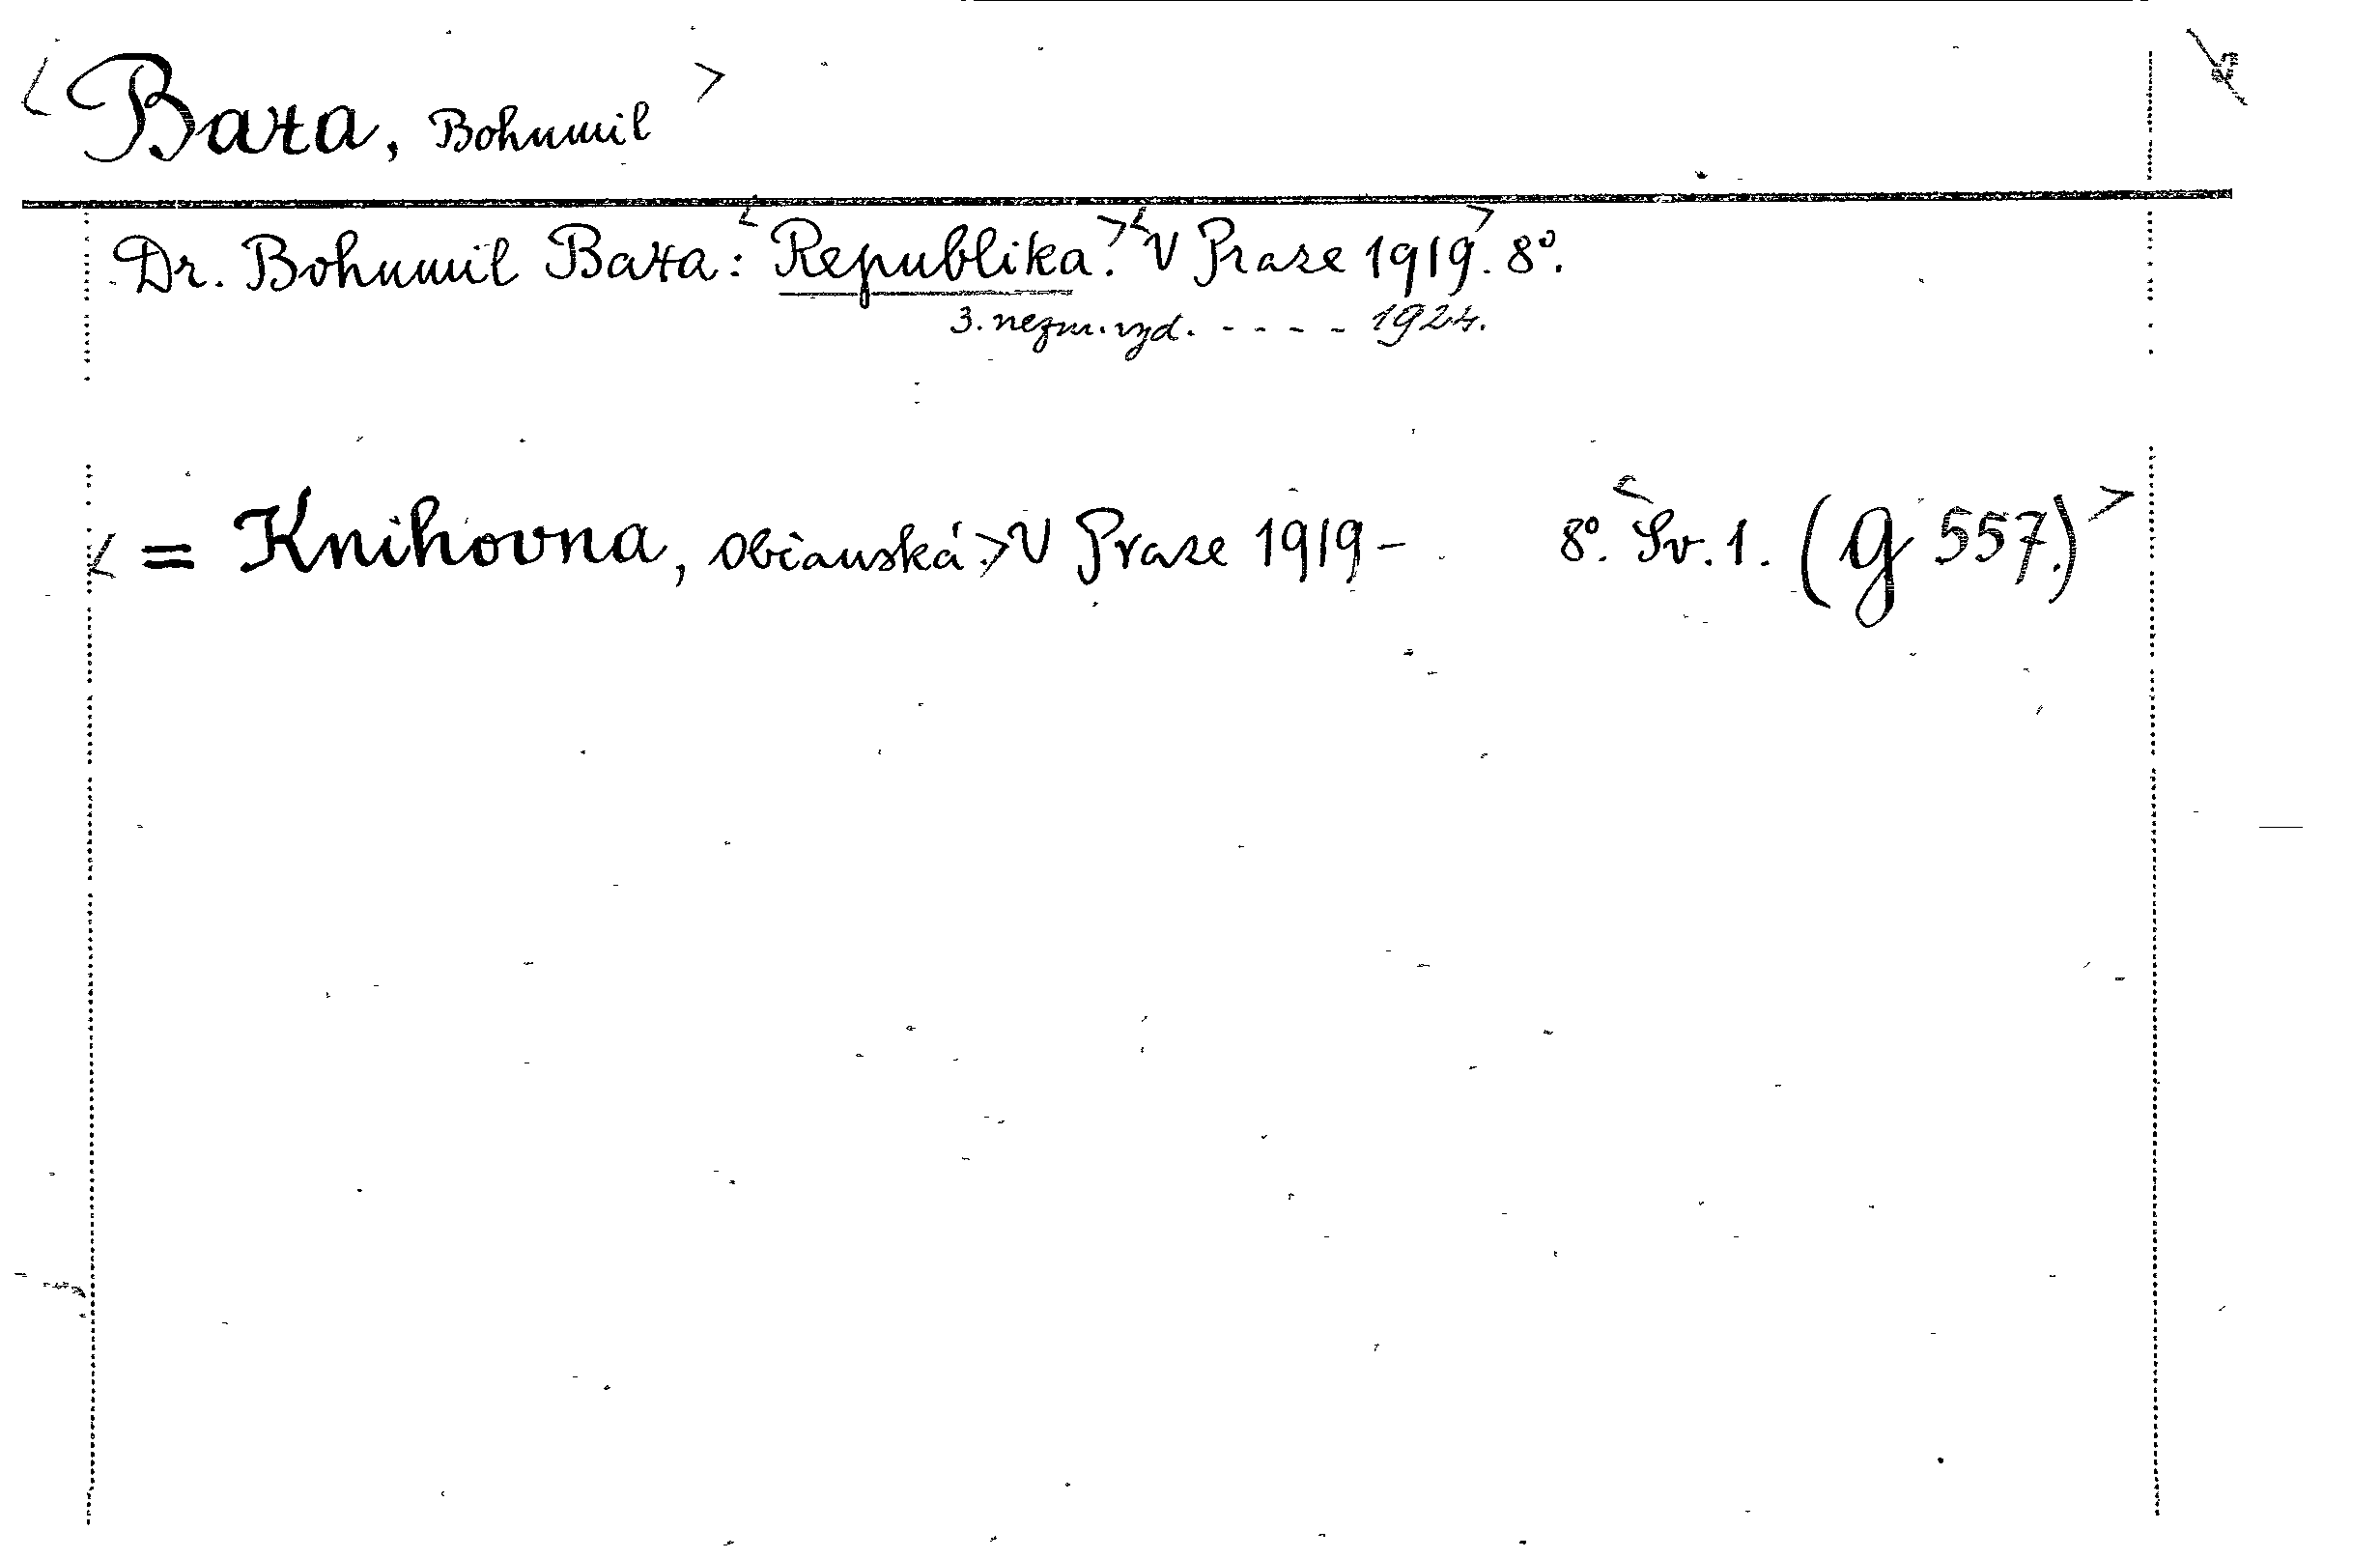 <Baxa, Bohumil>
Dr. Bohumil Baxa: <Republika.> <V Praze 1919>. 8º.
3. nezm. vyd. - - - - 1924.
< = Knihovna, občanská.> V Praze 1919 - 8º. <Sv. 1. (G 557.)>